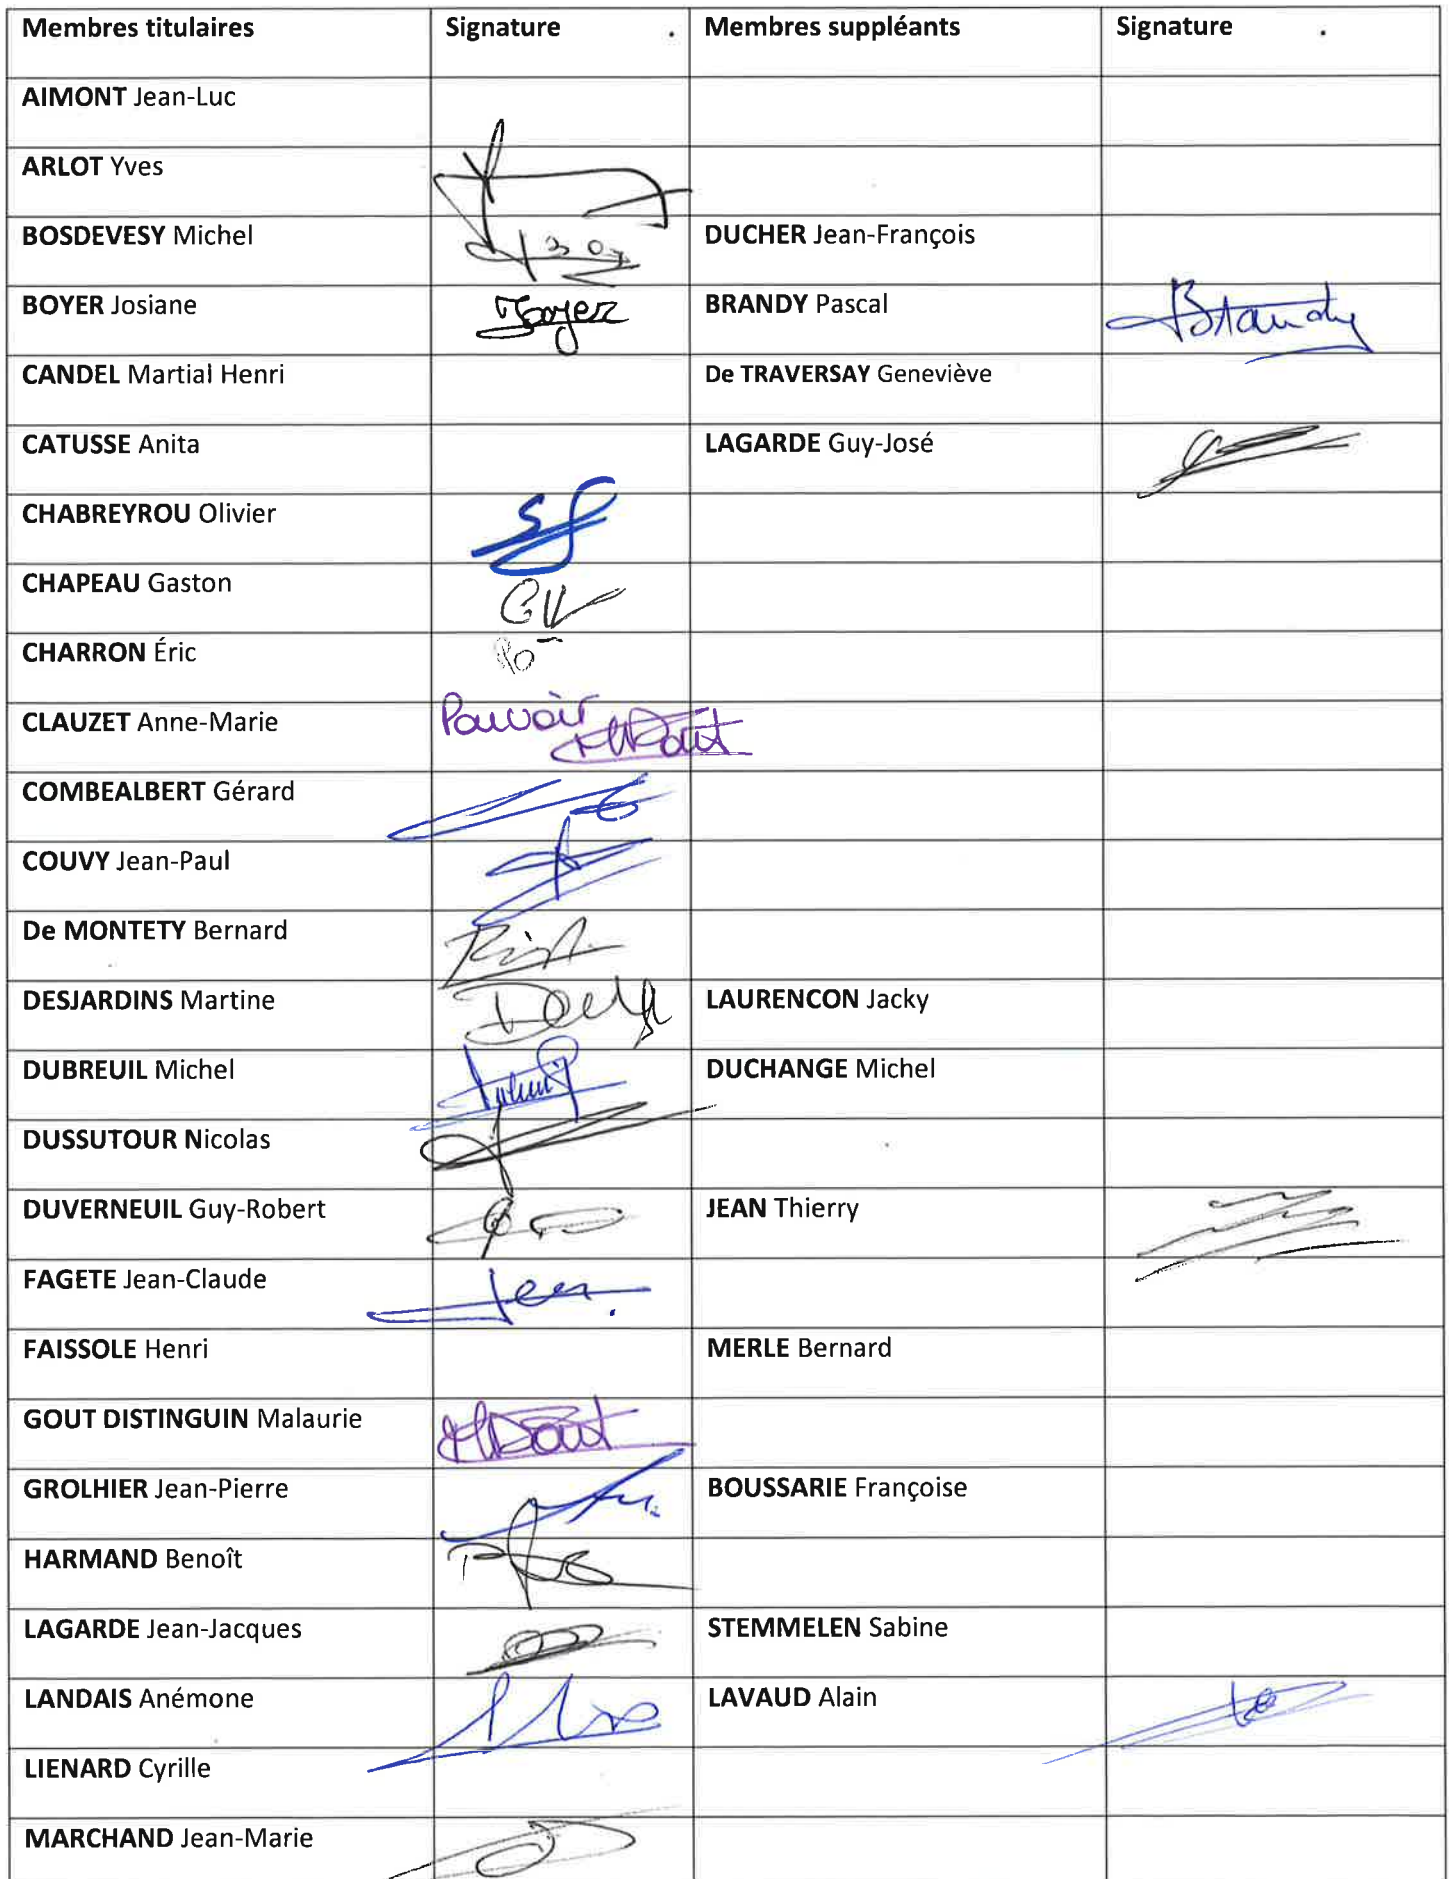 Membres titulaires Signature Membres suppléants Signature
AIMONT Jean-Luc
ARLOT Yves
BOSDEVESY Michel DUCHER Jean-François
BOYER Josiane Boyer BRANDY Pascal Brandy
CANDEL Martial Henri De TRAVERSAY Geneviève
CATUSSE Anita LAGARDE Guy-José
CHABREYROU Olivier
CHAPEAU Gaston
CHARRON Éric
CLAUZET Anne-Marie Pouvoir
COMBEALBERT Gérard
COUVY Jean-Paul
De MONTETY Bernard
DESJARDINS Martine LAURENCON Jacky
DUBREUIL Michel DUCHANGE Michel
DUSSUTOUR Nicolas
DUVERNEUIL Guy-Robert JEAN Thierry
FAGETE Jean-Claude
FAISSOLE Henri MERLE Bernard
GOUT DISTINGUIN Malaurie
GROLHIER Jean-Pierre BOUSSARIE Françoise
HARMAND Benoît
LAGARDE Jean-Jacques STEMMELEN Sabine
LANDAIS Anémone LAVAUD Alain
LIENARD Cyrille
MARCHAND Jean-Marie